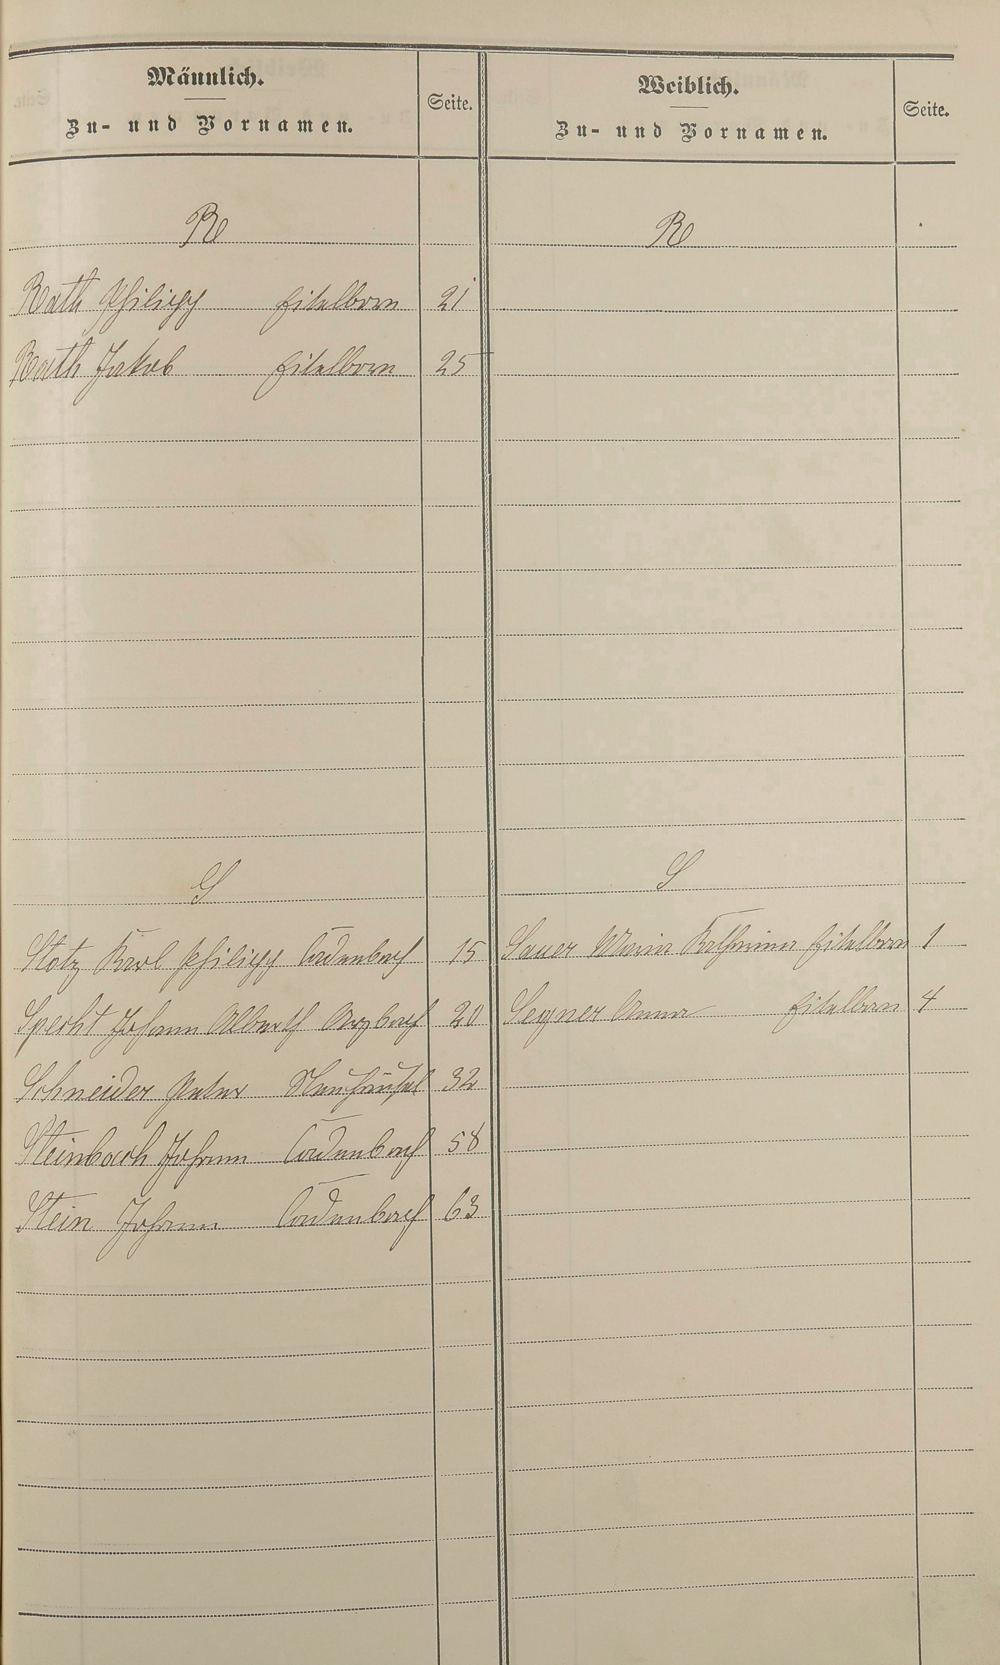 Männlich.
Zu- und Vornamen.
Seite.
Weiblich.
Zu- und Vornamen.
Seite.
R
R
Rath Philipp Eitelborn 21
Rath Jakob Eitelborn 25
S
S
Stotz Karl Philipp Cadenbach 15
Sauer Maria Katharina Eitelborn 1
Specht Johann Albert Arzbach 20
Segner Anna Eitelborn 4
Schneider Peter Neuhäusel 32
Steinbach Johann Cadenbach 58
Stein Johann Cadenbach 63